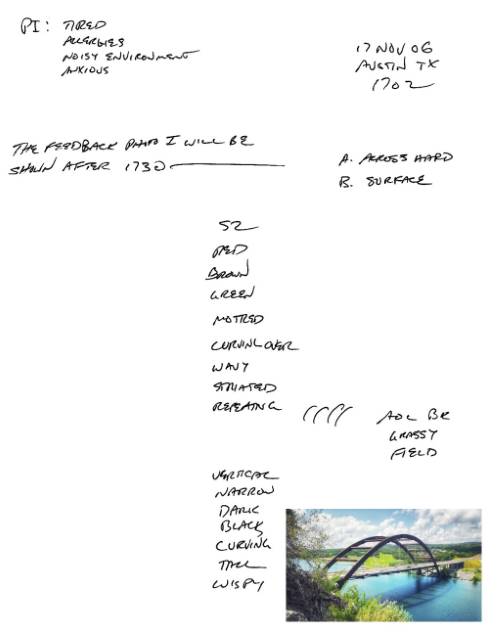 PI: TIRED
ALLERGIES
NOISY ENVIRONMENT
ANXIOUS
17 NOV 06
AUSTIN TX
1702
THE FEEDBACK PHOTO I WILL BE
SHOWN AFTER 1730
A. ACROSS HARD
B. SURFACE
S2
RED
BROWN
GREEN
MOTTLED
CURVING OVER
WAVY
STRIATED
REPEATING
AOL BK
GRASSY
FIELD
VERTICAL
NARROW
DARK
BLACK
CURVING
TALL
WISPY